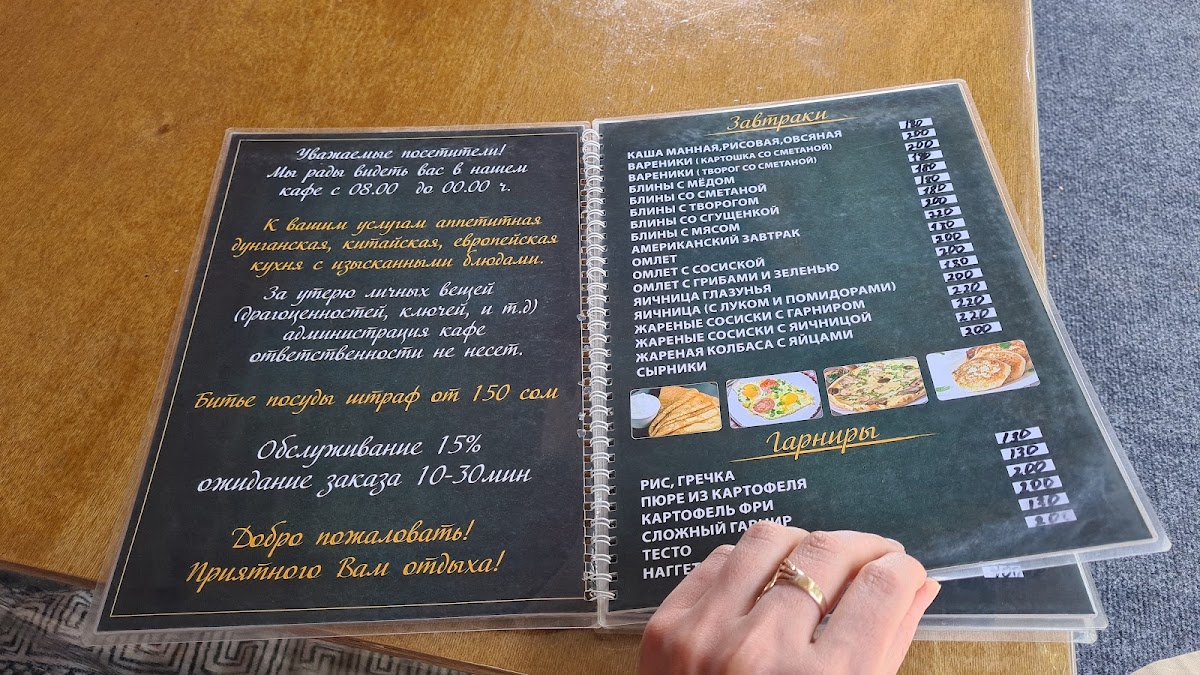 Уважаемые посетители!
Мы рады видеть вас в нашем
кафе с 08.00 до 00.00 ч.
К вашим услугам аппетитная
дунганская, китайская, европейская
кухня с изысканными блюдами.
За утерю личных вещей
(драгоценностей, ключей, и т.д)
администрация кафе
ответственности не несет.
Битье посуды штраф от 150 сом
Обслуживание 15%
ожидание заказа 10-30мин
Добро пожаловать!
Приятного Вам отдыха!
Завтраки
КАША МАННАЯ,РИСОВАЯ,ОВСЯНАЯ
ВАРЕНИКИ ( КАРТОШКА СО СМЕТАНОЙ) 200
ВАРЕНИКИ ( ТВОРОГ СО СМЕТАНОЙ) 200
БЛИНЫ С МЁДОМ
БЛИНЫ СО СМЕТАНОЙ
БЛИНЫ С ТВОРОГОМ
БЛИНЫ СО СГУЩЕНКОЙ
БЛИНЫ С МЯСОМ 200
АМЕРИКАНСКИЙ ЗАВТРАК 220
ОМЛЕТ
ОМЛЕТ С СОСИСКОЙ 200
ОМЛЕТ С ГРИБАМИ И ЗЕЛЕНЬЮ 200
ЯИЧНИЦА ГЛАЗУНЬЯ
ЯИЧНИЦА (С ЛУКОМ И ПОМИДОРАМИ) 200
ЖАРЕНЫЕ СОСИСКИ С ГАРНИРОМ 220
ЖАРЕНЫЕ СОСИСКИ С ЯИЧНИЦОЙ 220
ЖАРЕНАЯ КОЛБАСА С ЯЙЦАМИ 220
СЫРНИКИ 200
Гарниры
РИС, ГРЕЧКА 130
ПЮРЕ ИЗ КАРТОФЕЛЯ 130
КАРТОФЕЛЬ ФРИ 200
СЛОЖНЫЙ ГАРНИР 200
ТЕСТО 130
НАГГЕТ